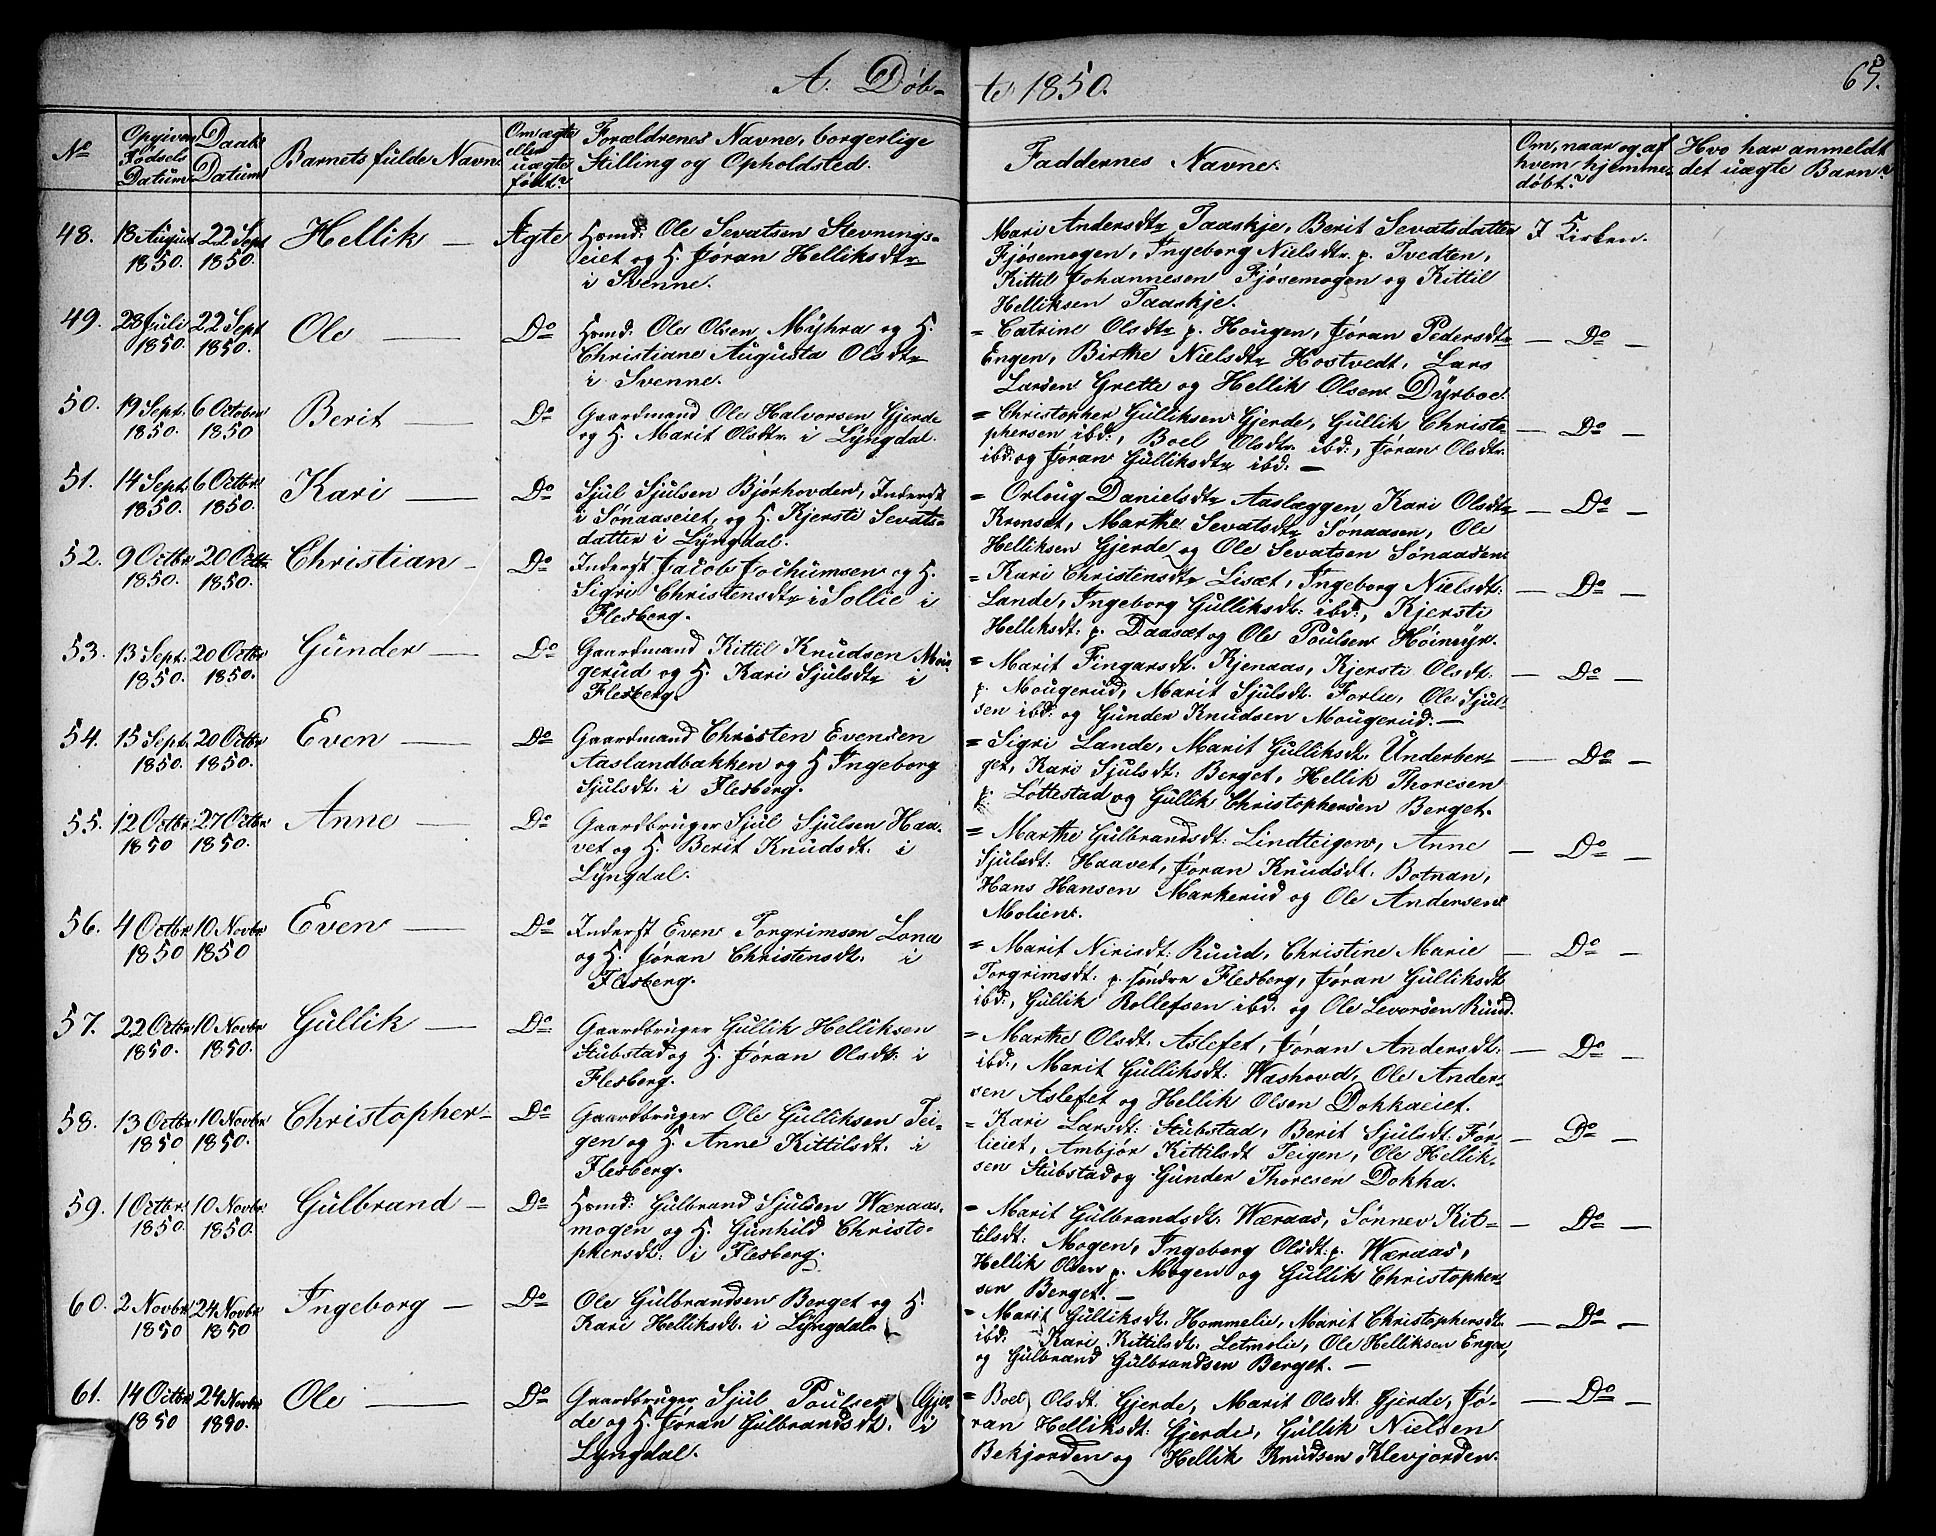 A. Døb- te 1850. 65.
No
Opgiven Fødsels Datum
Daabs Datum
Barnets fulde Navn
Om ægte eller uægte født?
Forældrenes Navne, borgerlige Stilling og Opholdsted
Faddernes Navne.
Om, naar og af hvem hjemmedøbt?
Hvo har anmeldt det uægte Barn?
48. 18 August 1850. 22 Sept 1850. Hellik — Ægte
Hsmd: Ole Sevatsen Stevnings-
eiet og H. Jøran Helliksdtr
i Svenne.
Mari Andersdtr Taaskje, Berit Sevatsdatter
Fjøsemogen, Ingeborg Nielsdtr. p. Tvedten,
Kittil Johannesen Fjøsemogen og Kittil
Helliksen Taaskje.
I Kirken.
49. 28 Juli 1850. 22 Sept 1850. Ole — Do
Hsmd: Ole Olsen Myhra og H.
Christiane Augusta Olsdtr
i Svenne.
= Catrine Olsdtr p. Hougen, Jøran Pedersdtr
Engen, Birthe Nielsdtr Hostvedt, Lars
Larsen Grette og Hellik Olsen Dyrboe.
— Do —
50. 19 Sept. 1850. 6 October 1850 Berit — Do
Gaardmand Ole Halvorsen Gjerde
og H. Marit Olsdtr. i Lyngdal.
= Christopher Gulliksen Gjerde, Gullik Christo-
phersen ibd:, Boel Olsdtr. ibd:, Jøran Olsdtr.
ibd: og Jøran Gulliksdtr ibd: —
— Do —
51. 14 Sept. 1850. 6 Octbr. 1850. Kari — Do
Sjul Sjulsen Bjørhovden, Inderst
i Sønaaseiet, og H. Kjersti Sevats-
datter i Lyngdal.
= Orloug Danielsdtr Aaslæggen, Kari Olsdtr
Kronsæt, Marthe Sevatsdtr Sønaasen, Ole
Helliksen Gjerde og Ole Sevatsen Sønaasen.
— Do —
52. 9 Octbr 1850. 20 Octbr 1850. Christian — Do
Inderst Jacob Jochumsen og H.
Sigri Christensdtr i Sollie i
Flesberg.
= Kari Christensdtr Lisæt, Ingeborg Nielsdt:
Lande, Ingeborg Gulliksdt: ibd:, Kjersti
Helliksdt: p. Daasæt og Ole Poulsen Høimyr.
— Do —
53. 13 Sept. 1850. 20 Octbr 1850. Gunder — Do
Gaardmand Kittil Knudsen Mou-
gerud og H. Kari Sjulsdtr i
Flesberg.
= Marit Fingarsdt. Kjenaas, Kjersti Olsdt.
p. Mougerud, Marit Sjulsdt: Forlie, Ole Sjul-
sen ibd: og Gunder Knudsen Mougerud. —
— Do —
54. 15 Sept. 1850. 20 Octbr 1850. Even — Do
Gaardmand Christen Evensen
Aaslandbakken og H Ingeborg
Sjulsdt. i Flesberg.
= Sigri Lande, Marit Gulliksdt. Underber-
get, Kari Sjulsdt: Berget, Hellik Thoresen
p. Løttestad og Gullik Christophersen Berget.
— Do —
55. 12 Octbr. 1850 27 Octbr. 1850. Anne — Do
Gaardbruger Sjul Sjulsen Haa-
vet og H. Berit Knudsdt. i
Lyngdal.
= Marthe Gulbrandsdt: Lindteigen, Anne
Sjulsdt: Haavet, Jøran Knudsdt. Botnan,
Hans Hansen Markerud og Ole Andersen
Molien.
— Do —
56. 4 Octbr. 1850 10 Novbr 1850 Even — Do
Inderst Even Torgrimsen Lona
og H. Jøran Christensdt. i
Flesberg.
= Marit Nirisdt: Ruud, Christine Marie
Torgrimsdt: p. søndre Flesberg, Jøran Gulliksdt
ibd:, Gullik Rollefsen ibd: og Ole Levorsen Ruud.
— Do —
57. 22 Octbr 1850. 10 Novbr. 1850. Gullik — Do
Gaardbruger Gullik Helliksen
Stubstad og H. Jøran Olsdt. i
Flesberg.
= Marthe Olsdt. Aslefet, Jøran Andersdt:
ibd:, Marit Gulliksdt: Washovd, Ole Ander-
sen Aslefet og Hellik Olsen Dokkaeiet.
— Do —
58. 13 Octbr. 1850 10 Novbr. 1850. Christopher — Do
Gaardbruger Ole Gulliksen Tei-
gen og H. Anne Kittilsdt. i
Flesberg.
= Kari Larsdt: Stubstad, Berit Sjulsdt: For-
lieiet, Ambjør Kittilsdt Teigen, Ole Hellik-
sen Stubstad og Gunder Thoresen Dokka.
— Do —
59. 1 Octbr. 1850. 10 Novbr. 1850. Gulbrand — Do
Hsmd: Gulbrand Sjulsen Wæraas-
mogen og H. Gunhild Christo-
phersdt: i Flesberg.
= Marit Gulbrandsdt. Wæraas, Sønnev Kit-
tilsdt: Mogen, Ingeborg Olsdt: p. Wæraas,
Hellik Olsen p. Mogen og Gullik Christopher-
sen Berget. —
— Do —
60. 2 Novbr. 1850 24 Novbr 1850 Ingeborg — Do
Ole Gulbrandsen Berget og H.
Kari Helliksdt. i Lyngdal.
= Marit Gulliksdt. Hommelie, Marit Christophersdt.
ibd: Kari Kittilsdt. Letmolie, Ole Helliksen Enger,
og Gulbrand Gulbrandsen Berget. —
— Do —
61. 14 Octbr 1850 24 Novbr 1850. Ole — Do
Gaardbruger Sjul Poulsen Gjer-
de og H. Jøran Gulbrandsdt. i
Lyngdal.
= Boel Olsdt. Gjerde, Marit Olsdt. Gjerde, Jø-
ran Helliksdt: Gjerde, Gullik Nielsen
Bekjorden og Hellik Knudsen Klevjorden.
— Do —